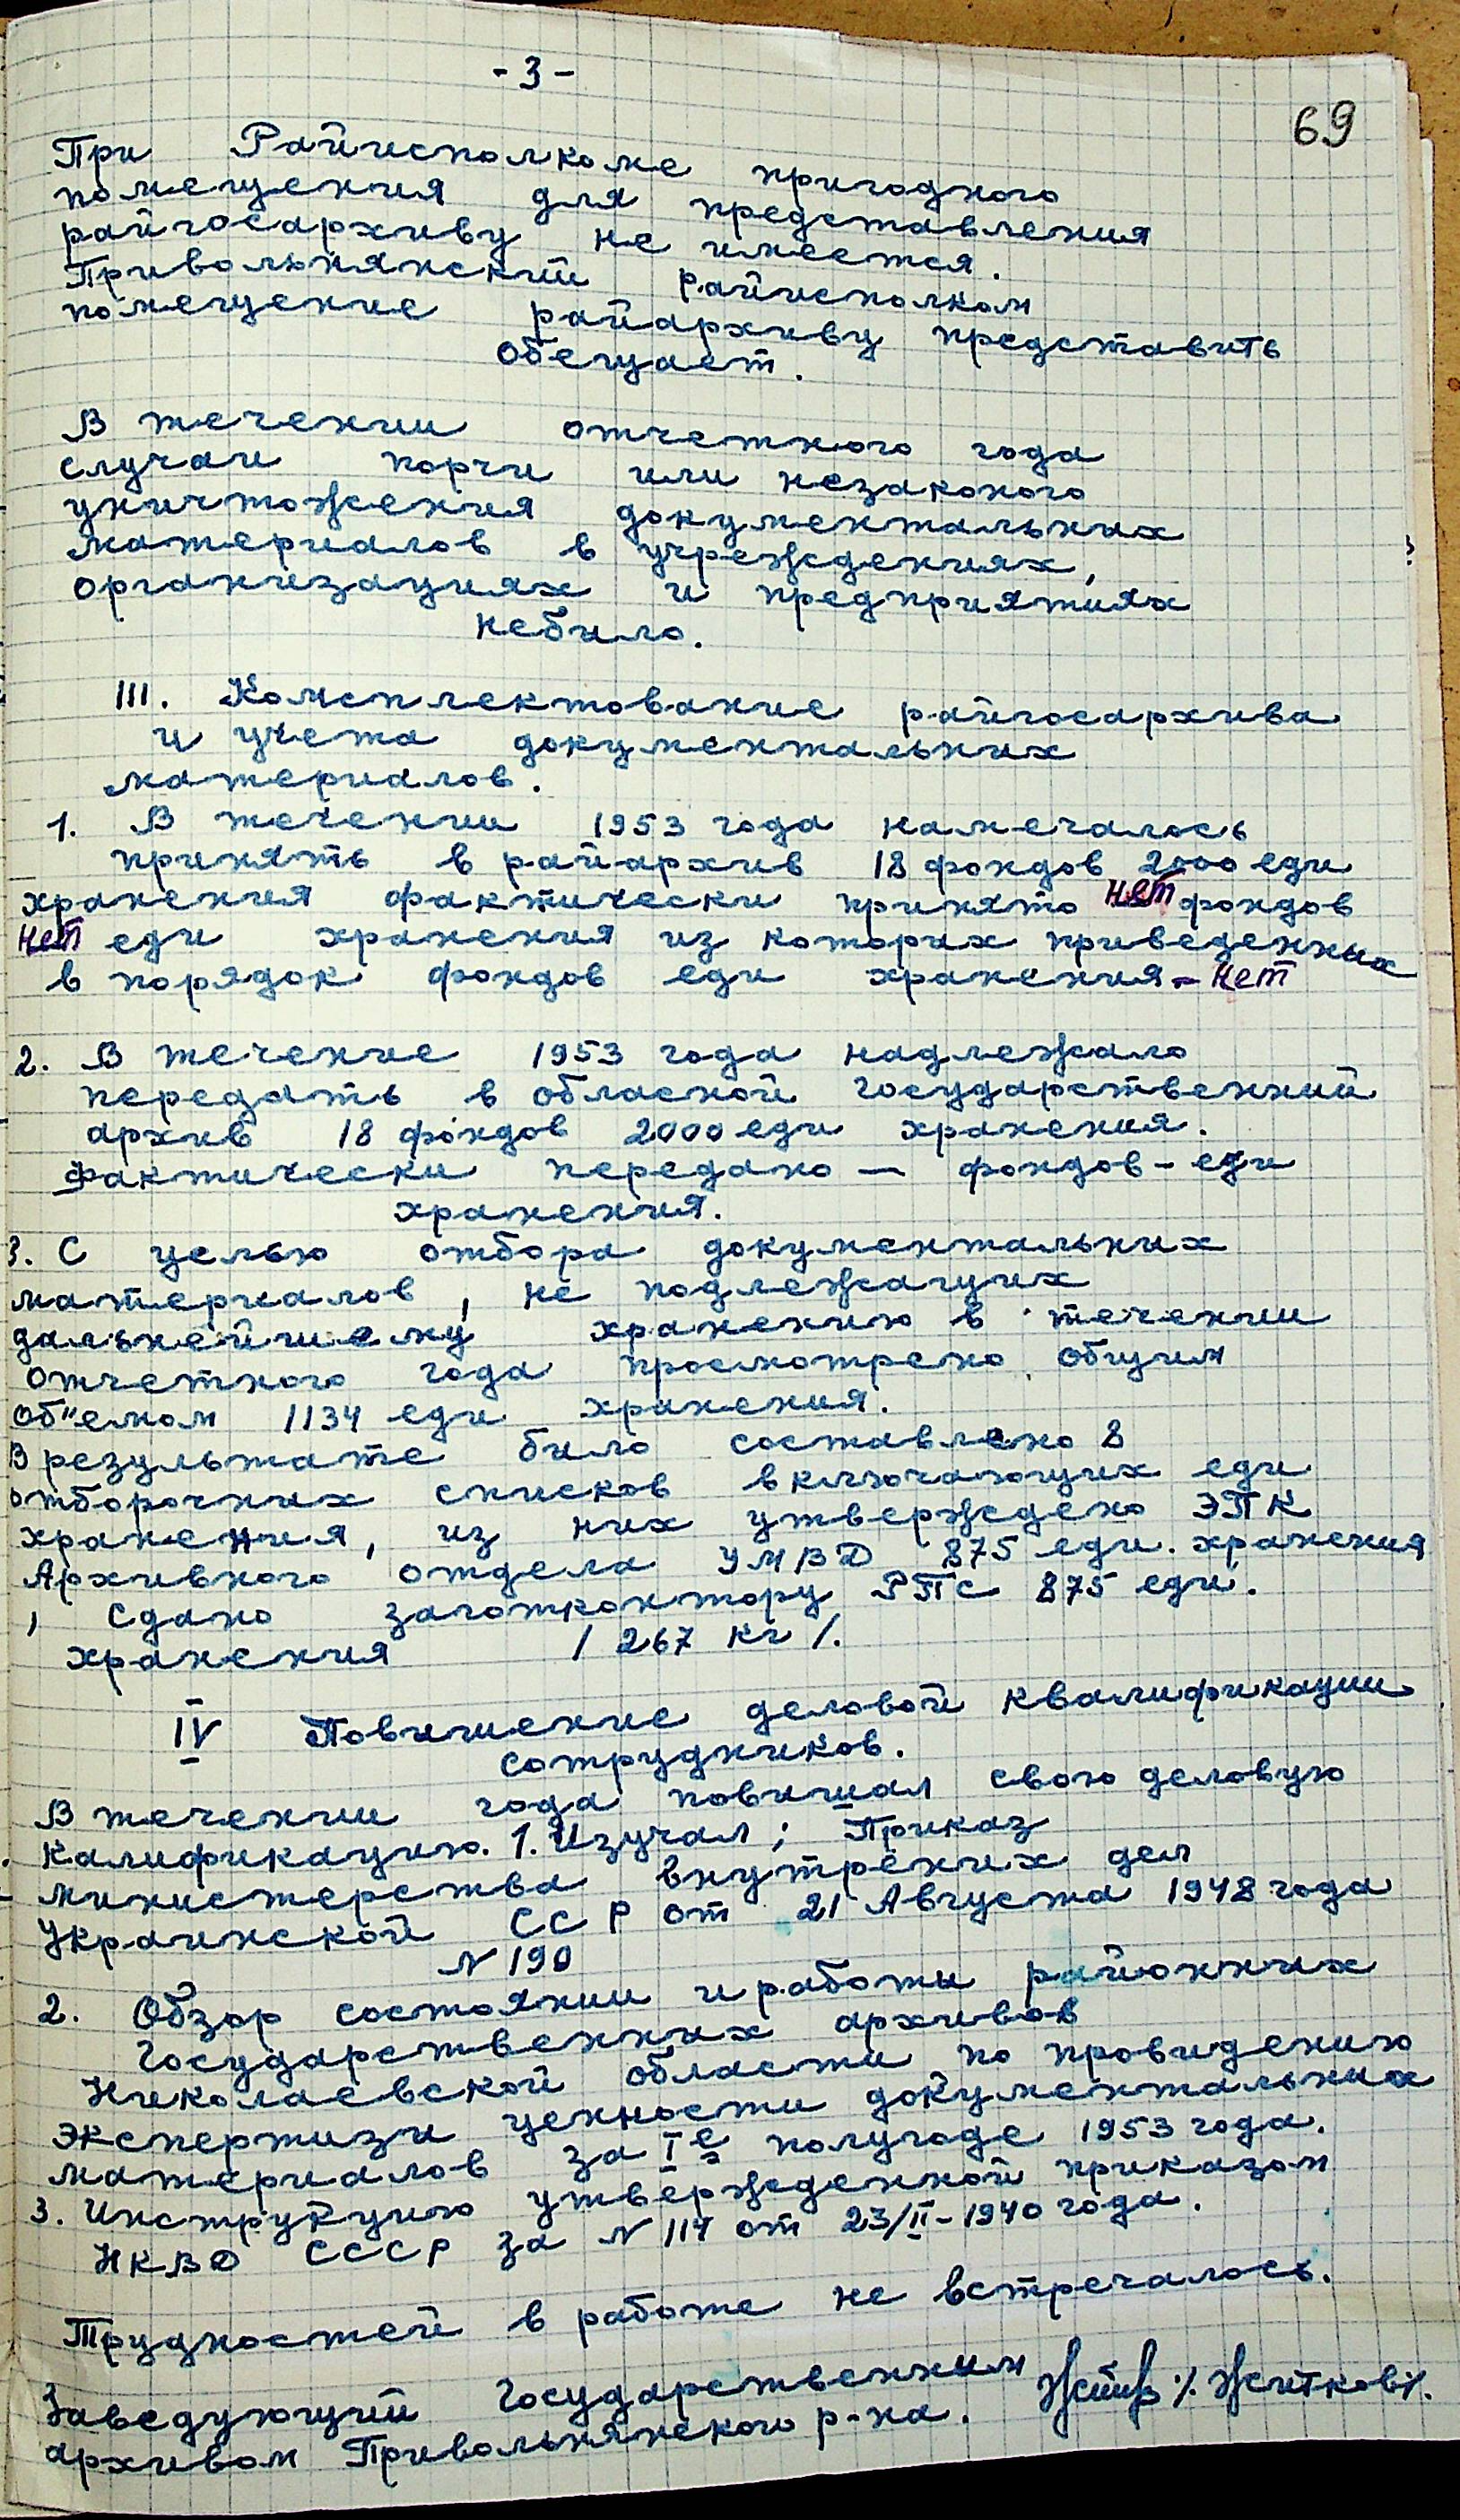 - 3 -
69
При Райисполкоме пригодного
помещения для представления
райгосархиву не имеется.
Привольнянский райисполком
помещение райархиву представить
обещает.
В течении отчетного года
случаи порчи или незаконого
уничтожения документальных
материалов в учреждениях,
организациях и предприятиях
небило.
III. Комсплектование райгосархива
и учета документальних
материалов.
1. В течении 1953 года намечалось
принять в райархив 18 фондов 2000 еди
хранения фактически принято нет фондов
нет еди хранения из которих приведенных
в порядок фондов еди хранения - нет
2. В течение 1953 года надлежало
передать в обласной государственний
архив 18 фондов 2000 еди хранения.
Фактически передано — фондов - еди
хранения.
3. С целью отбора документальних
материалов, не подлежащих
дальнейшему хранению в течении
отчетного года просмотрено общим
об"емом 1134 еди хранения.
В результате било составлено 8
отборочних списков включающих еди
хранения, из них утверждено ЭПК
Архивного отдела УМВД 875 еди. хранения
, сдано заготконтору РПС 875 еди.
хранения / 267 кг /.
IV Повишение деловой квалификации
сотрудников.
В течении года повишал свою деловую
калификацию. 1. Изучал; Приказ
министерства внутрених дел
Украинской ССР от 21 Августа 1948 года
N 190
2. Обзор состоянии и работы районних
Государственних архивов
Николаевской области по провидению
экспертизи ценности документальних
материалов за Iе полугоде 1953 года.
3. Инструкцию утвержденной приказом
НКВД СССР за N 114 от 23/II - 1940 года.
Трудностей в работе не встречалось.
Заведующий Государственним
архивом Привольнянского р-на. /. Житков /.